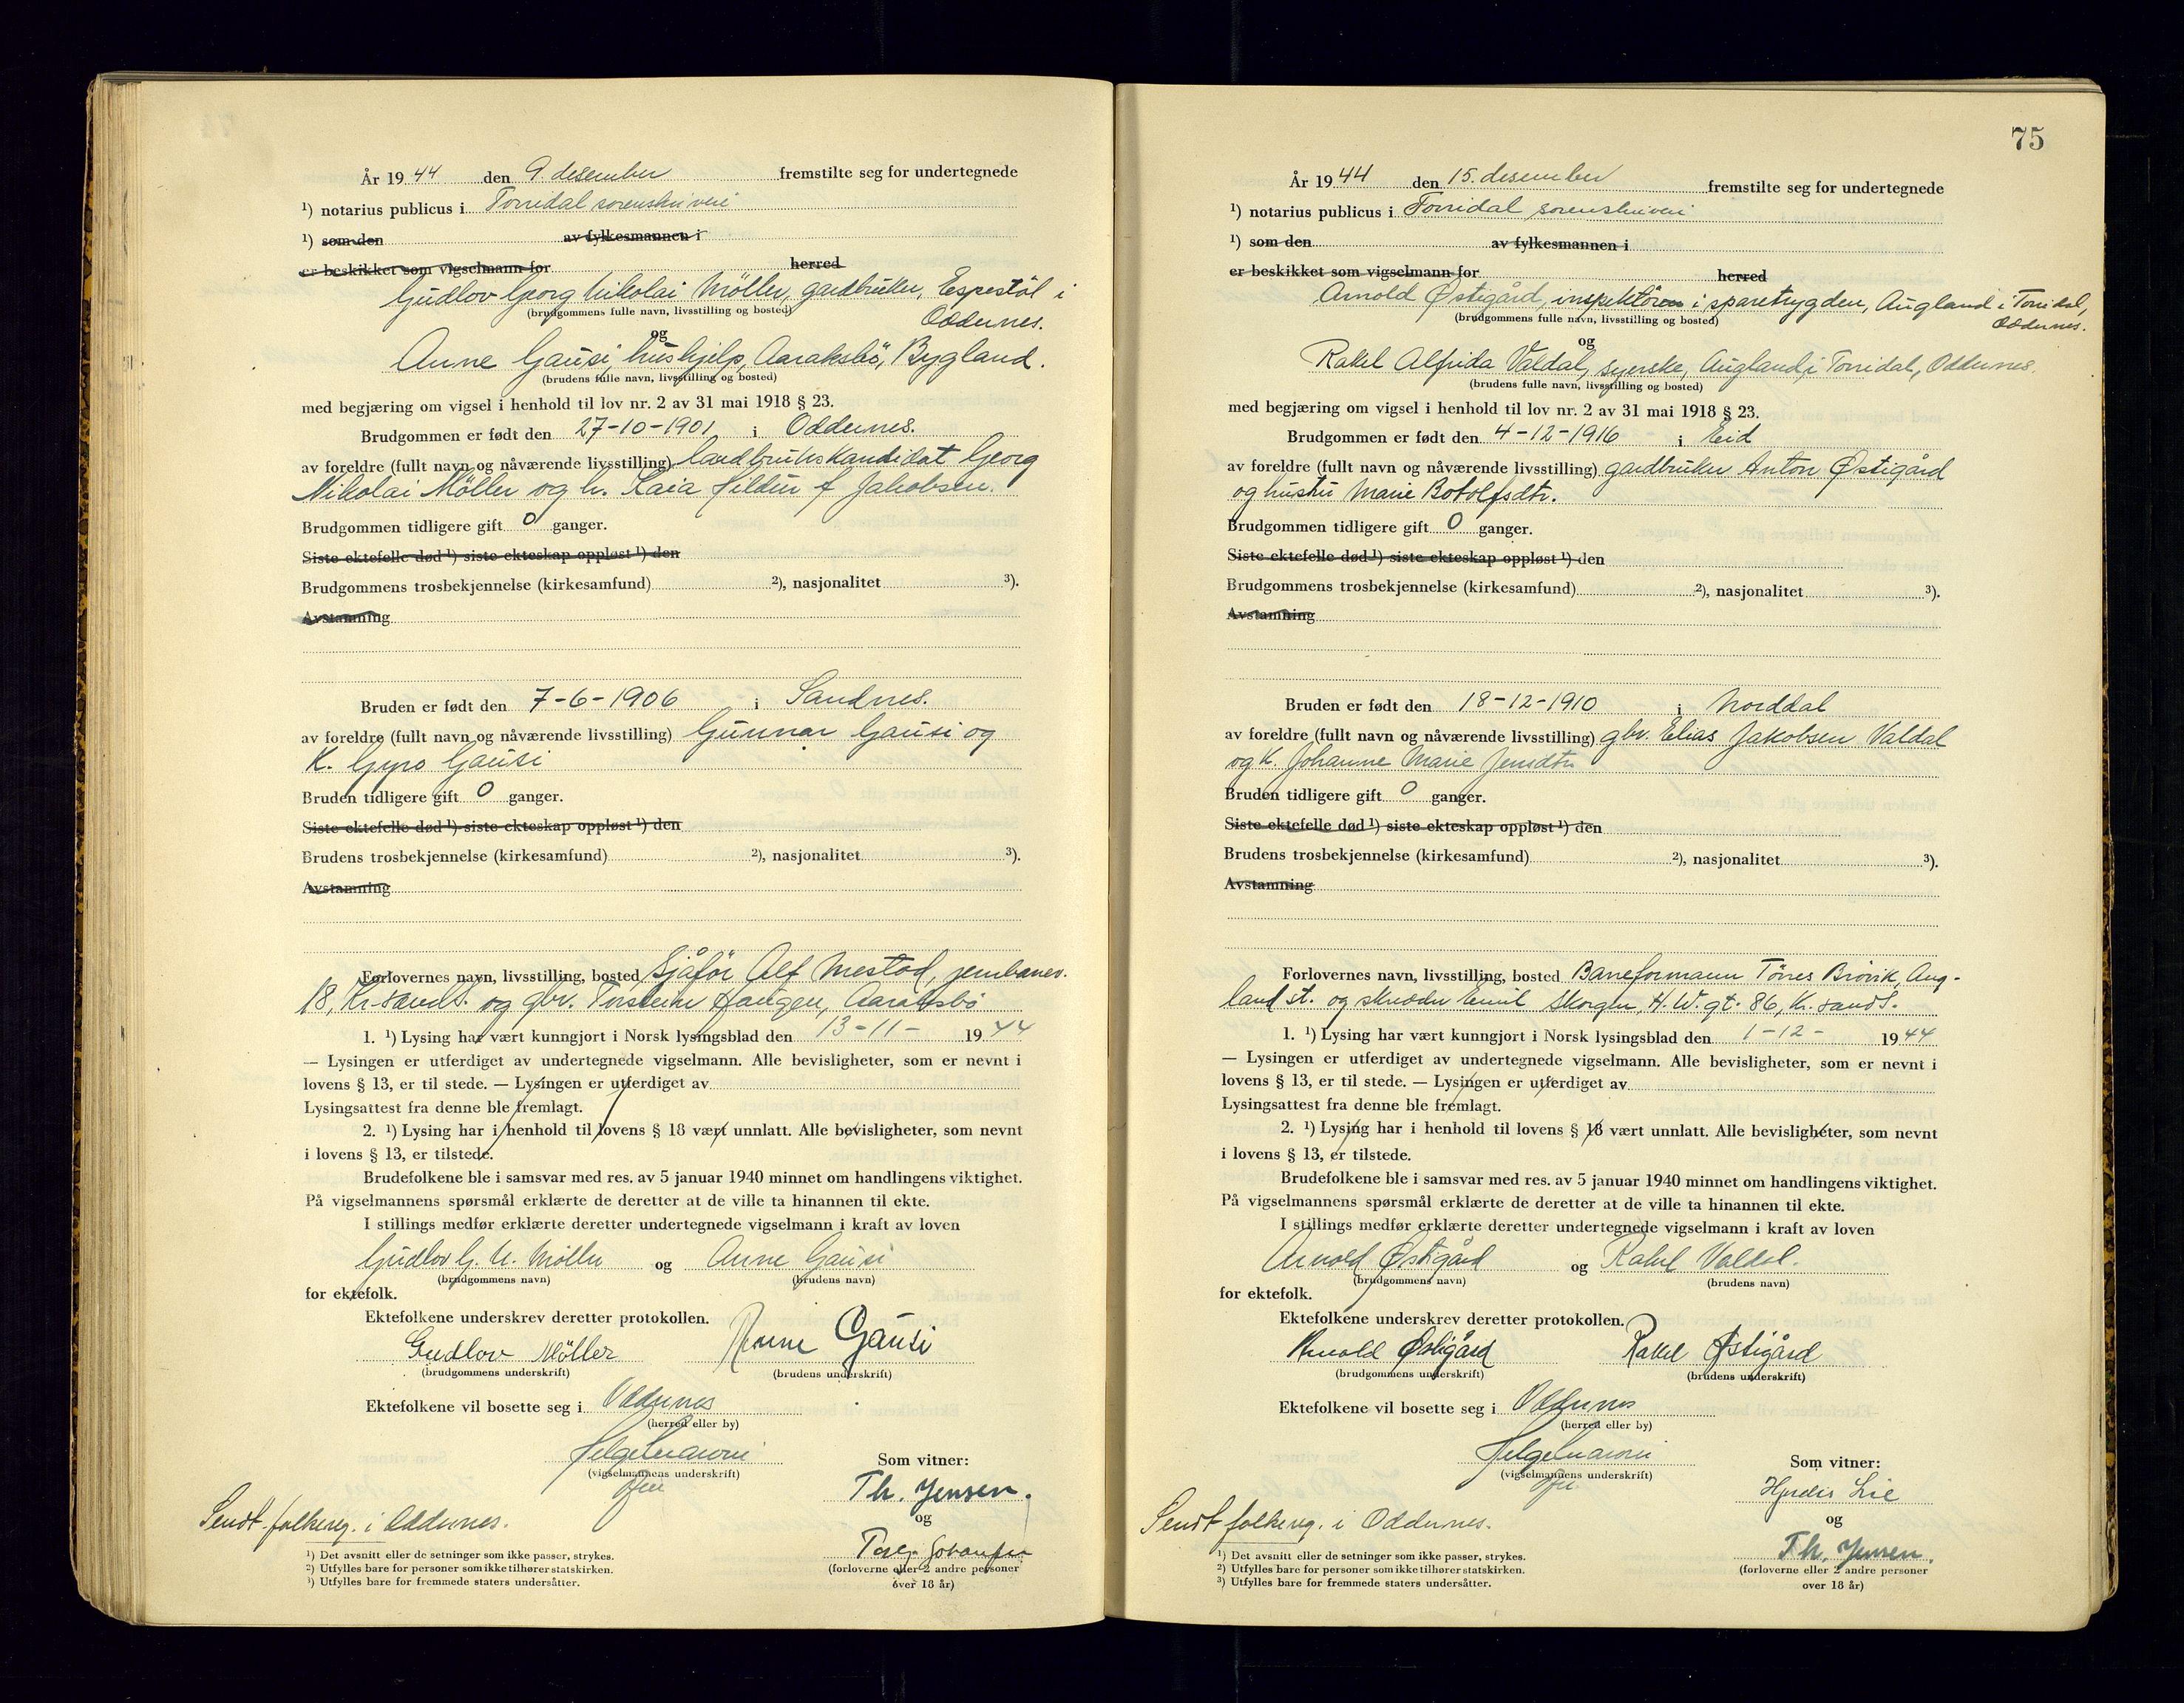 År 1944 den 9. desember fremstilte seg for undertegnede
¹) notarius publicus i Torridal sorenskriveri
¹) som den av fylkesmannen i
er beskikket som vigselmann for herred
Gudlov Georg Nikolai Möller, gardbruker, Espestöl i
(brudgommens fulle navn, livsstilling og bosted)
Oddernes.
og
Anne Gausi, hushjelp, Aaraksbö, Bygland.
(brudens fulle navn, livsstilling og bosted)
med begjæring om vigsel i henhold til lov nr. 2 av 31 mai 1918 § 23.
Brudgommen er født den 27-10-1901 i Oddernes.
av foreldre (fullt navn og nåværende livsstilling) landbrukskandidat Georg
Nikolai Möller og h. Kaia Hildur f Jakobsen.
Brudgommen tidligere gift 0 ganger.
Siste ektefelle død ¹) siste ekteskap oppløst ¹) den
Brudgommens trosbekjennelse (kirkesamfund) ²), nasjonalitet ³).
Avstamning
Bruden er født den 7-6-1906 i Sandnes.
av foreldre (fullt navn og nåværende livsstilling) Gunnar Gausi og
K. Gyro Gausi
Bruden tidligere gift 0 ganger.
Siste ektefelle død ¹) siste ekteskap oppløst ¹) den
Brudens trosbekjennelse (kirkesamfund) ²), nasjonalitet ³).
Avstamning
Forlovernes navn, livsstilling, bosted Sjåför Alf Mestad, jernbanev.
18, Kr.sand S. og gbr. Torstein Haugen, Aaraksbö
1. ¹) Lysing har vært kunngjort i Norsk lysingsblad den 13-11- 1944
— Lysingen er utferdiget av undertegnede vigselmann. Alle bevisligheter, som er nevnt i
lovens § 13, er til stede. — Lysingen er utferdiget av
Lysingsattest fra denne ble fremlagt.
2. ¹) Lysing har i henhold til lovens § 18 vært unnlatt. Alle bevisligheter, som nevnt
i lovens § 13, er tilstede.
Brudefolkene ble i samsvar med res. av 5 januar 1940 minnet om handlingens viktighet.
På vigselmannens spørsmål erklærte de deretter at de ville ta hinannen til ekte.
I stillings medfør erklærte deretter undertegnede vigselmann i kraft av loven
Gudlov G. N. Möller og Anne Gausi
(brudgommens navn) (brudens navn)
for ektefolk.
Ektefolkene underskrev deretter protokollen.
Gudlov Möller Anne Gausi
(brudgommens underskrift) (brudens underskrift)
Ektefolkene vil bosette seg i Oddernes
(herred eller by)
(vigselmannens underskrift)
Som vitner:
Th. Jensen.
og
Sendt folkereg. i Oddernes.
(forloverne eller 2 andre personer
over 18 år)
¹) Det avsnitt eller de setninger som ikke passer, strykes.
²) Utfylles bare for personer som ikke tilhører statskirken.
³) Utfylles bare for fremmede staters undersåtter.
75
År 1944 den 15. desember fremstilte seg for undertegnede
¹) notarius publicus i Torridal sorenskriveri
¹) som den av fylkesmannen i
er beskikket som vigselmann for herred
Arnold Østigård, inspektören i sparetrygden, Augland i Torridal,
(brudgommens fulle navn, livsstilling og bosted)
Oddernes.
og
Rakel Alfrida Valdal, syerske, Augland i Torridal, Oddernes.
(brudens fulle navn, livsstilling og bosted)
med begjæring om vigsel i henhold til lov nr. 2 av 31 mai 1918 § 23.
Brudgommen er født den 4-12-1916 i Eid
av foreldre (fullt navn og nåværende livsstilling) gardbruker Anton Østigård
og hustru Marie Botolfsdtr.
Brudgommen tidligere gift 0 ganger.
Siste ektefelle død ¹) siste ekteskap oppløst ¹) den
Brudgommens trosbekjennelse (kirkesamfund) ²), nasjonalitet ³).
Avstamning
Bruden er født den 18-12-1910 i Norddal
av foreldre (fullt navn og nåværende livsstilling) gbr. Elias Jakobsen Valdal
og K. Johanne Marie Jensdtr
Bruden tidligere gift 0 ganger.
Siste ektefelle død ¹) siste ekteskap oppløst ¹) den
Brudens trosbekjennelse (kirkesamfund) ²), nasjonalitet ³).
Avstamning
Forlovernes navn, livsstilling, bosted Baneformann Tönes Brövik, Aug-
land st. og skredder Emil Skorgen, H. W. gt. 86, K. sand S.
1. ¹) Lysing har vært kunngjort i Norsk lysingsblad den 1-12- 1944
— Lysingen er utferdiget av undertegnede vigselmann. Alle bevisligheter, som er nevnt i
lovens § 13, er til stede. — Lysingen er utferdiget av
Lysingsattest fra denne ble fremlagt.
2. ¹) Lysing har i henhold til lovens § 18 vært unnlatt. Alle bevisligheter, som nevnt
i lovens § 13, er tilstede.
Brudefolkene ble i samsvar med res. av 5 januar 1940 minnet om handlingens viktighet.
På vigselmannens spørsmål erklærte de deretter at de ville ta hinannen til ekte.
I stillings medfør erklærte deretter undertegnede vigselmann i kraft av loven
Arnold Østigård og Rakel Valdal.
(brudgommens navn) (brudens navn)
for ektefolk.
Ektefolkene underskrev deretter protokollen.
Arnold Østigård Rakel Østigård
(brudgommens underskrift) (brudens underskrift)
Ektefolkene vil bosette seg i Oddernes
(herred eller by)
(vigselmannens underskrift)
Som vitner:
Hjørdis Lie
og
Th. Jensen.
Sendt folkereg. i Oddernes.
(forloverne eller 2 andre personer
over 18 år)
¹) Det avsnitt eller de setninger som ikke passer, strykes.
²) Utfylles bare for personer som ikke tilhører statskirken.
³) Utfylles bare for fremmede staters undersåtter.